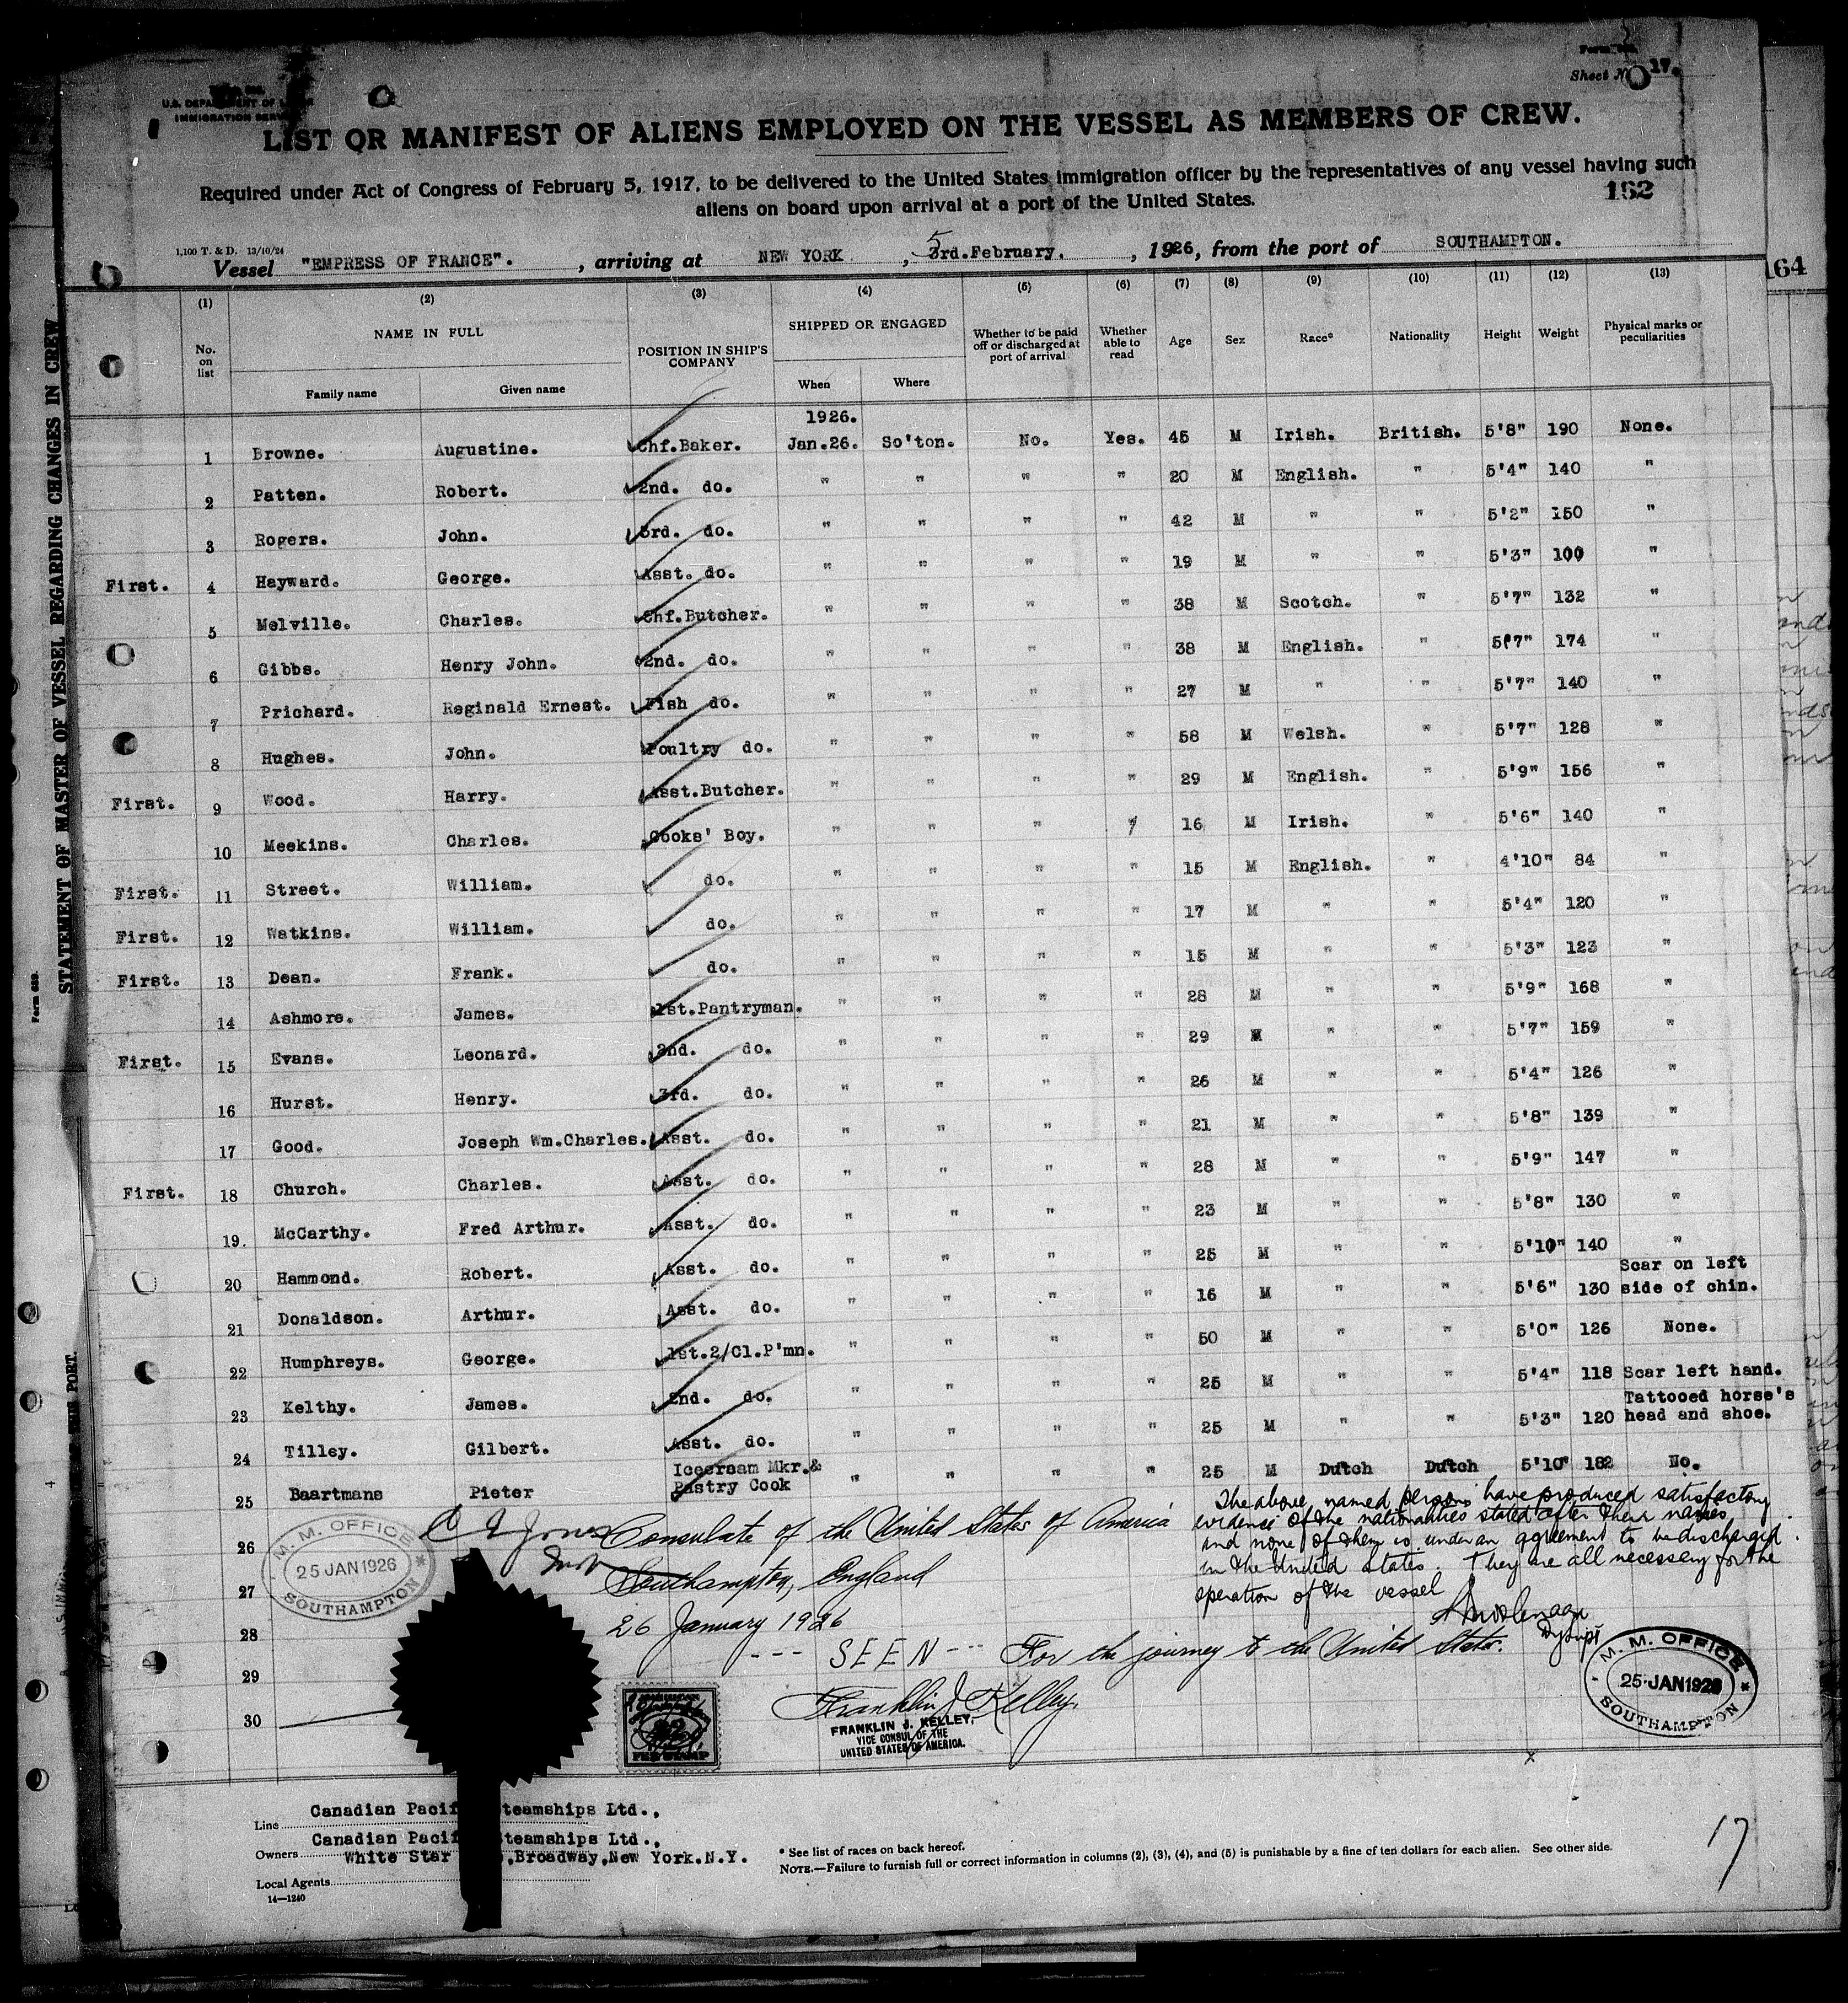 Sheet No 17.
U.S. DEPARTMENT OF LABOR
IMMIGRATION SERVICE
LIST OR MANIFEST OF ALIENS EMPLOYED ON THE VESSEL AS MEMBERS OF CREW.
Required under Act of Congress of February 5, 1917, to be delivered to the United States immigration officer by the representatives of any vessel having such
aliens on board upon arrival at a port of the United States.
182
164
1,100 T. & D. 13/10/24
Vessel "EMPRESS OF FRANCE". , arriving at NEW YORK , 5 3rd.February. , 1926, from the port of SOUTHAMPTON.
(1) (2) (3) (4) (5) (6) (7) (8) (9) (10) (11) (12) (13)
No. on list NAME IN FULL Family name Given name POSITION IN SHIP'S COMPANY SHIPPED OR ENGAGED When Where Whether to be paid off or discharged at port of arrival Whether able to read Age Sex Race* Nationality Height Weight Physical marks or peculiarities
1926.
1 Browne. Augustine. Chf.Baker. Jan.26. So'ton. No. Yes. 45 M Irish. British. 5'8" 190 None.
2 Patten. Robert. 2nd. do. " " " " 20 M English. " 5'4" 140 "
3 Rogers. John. 3rd. do. " " " " 42 M " " 5'2" 150 "
First. 4 Hayward. George. Asst. do. " " " " 19 M " " 5'3" 100 "
5 Melville. Charles. Chf.Butcher. " " " " 38 M Scotch. " 5'7" 132 "
6 Gibbs. Henry John. 2nd. do. " " " " 38 M English. " 5'7" 174 "
7 Prichard. Reginald Ernest. Fish do. " " " " 27 M " " 5'7" 140 "
8 Hughes. John. Poultry do. " " " " 58 M Welsh. " 5'7" 128 "
First. 9 Wood. Harry. Asst.Butcher. " " " " 29 M English. " 5'9" 156 "
10 Meekins. Charles. Cooks' Boy. " " " " 16 M Irish. " 5'6" 140 "
First. 11 Street. William. do. " " " " 15 M English. " 4'10" 84 "
First. 12 Watkins. William. do. " " " " 17 M " " 5'4" 120 "
First. 13 Dean. Frank. do. " " " " 15 M " " 5'3" 123 "
14 Ashmore. James. 1st.Pantryman. " " " " 28 M " " 5'9" 168 "
First. 15 Evans. Leonard. 2nd. do. " " " " 29 M " " 5'7" 159 "
16 Hurst. Henry. 3rd. do. " " " " 26 M " " 5'4" 126 "
17 Good. Joseph Wm.Charles. Asst. do. " " " " 21 M " " 5'8" 139 "
First. 18 Church. Charles. Asst. do. " " " " 28 M " " 5'9" 147 "
19. McCarthy. Fred Arthur. Asst. do. " " " " 23 M " " 5'8" 130 "
20 Hammond. Robert. Asst. do. " " " " 25 M " " 5'10" 140 "
21 Donaldson. Arthur. Asst. do. " " " " 16 M " " 5'6" 130 Scar on left side of chin.
22 Humphreys. George. 1st.2/Cl.P'mn. " " " " 50 M " " 5'0" 126 None.
23 Kelthy. James. 2nd. do. " " " " 25 M " " 5'4" 118 Scar left hand.
24 Tilley. Gilbert. Asst. do. " " " " 25 M " " 5'3" 120 Tattooed horse's head and shoe.
25 Baartmans Pieter Icecream Mkr.& Pastry Cook " " " " 25 M Dutch Dutch 5'10" 182 No.
26
27
28
29
30
M. M. OFFICE
25 JAN 1926
SOUTHAMPTON
Consulate of the United States of America
Southampton, England
26 January 1926
--- SEEN --- For the journey to the United States.
Franklin J Kelley.
FRANKLIN J. KELLEY,
VICE CONSUL OF THE
UNITED STATES OF AMERICA.
The above named persons have produced satisfactory
evidence of the nationalities stated after their names,
and none of them is under an agreement to be discharged
in the United States. They are all necessary for the
operation of the vessel
M. M. OFFICE
25 JAN 1926
SOUTHAMPTON
Line Canadian Pacif teamships Ltd.,
Owners Canadian Pacif Steamships Ltd.,
White Star ,Broadway,New York.N.Y.
Local Agents
14—1240
* See list of races on back hereof.
NOTE.—Failure to furnish full or correct information in columns (2), (3), (4), and (5) is punishable by a fine of ten dollars for each alien. See other side.
17
STATEMENT OF MASTER OF VESSEL REGARDING CHANGES IN CREW
Form 689.